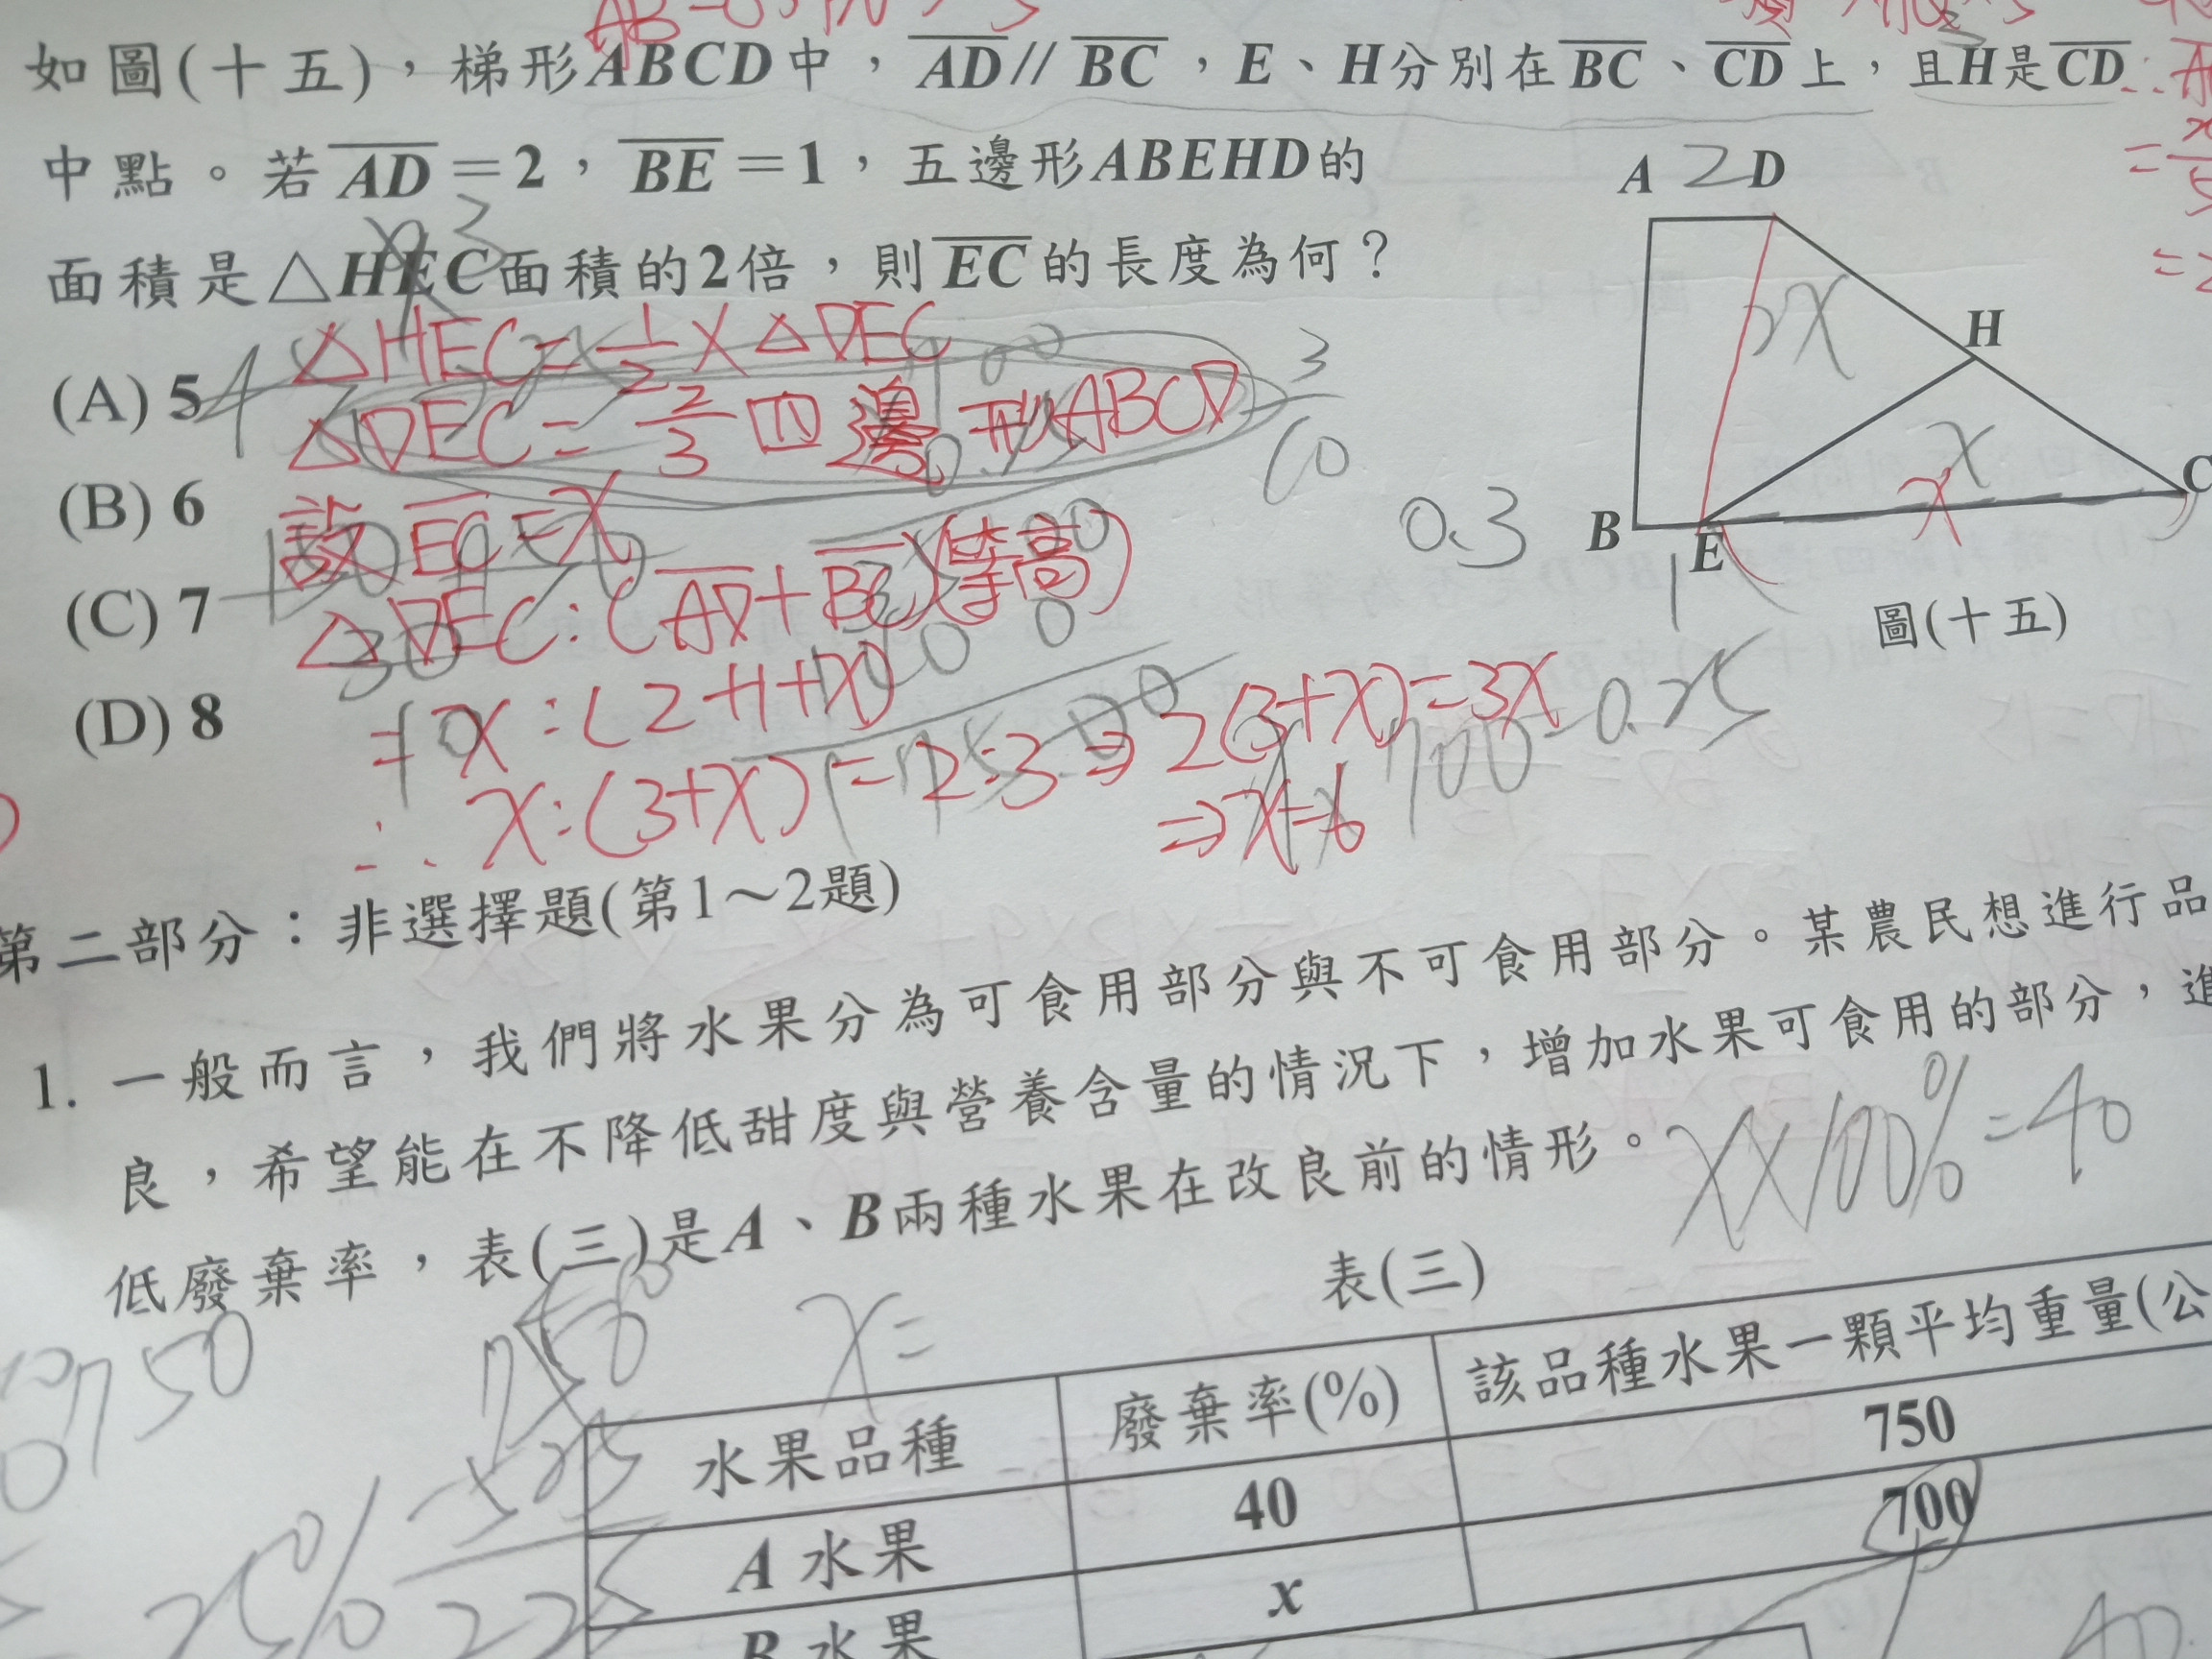 如圖(十五)，梯形ABCD中，AD // BC，E、H分別在BC、CD上，且H是CD
中點。若AD=2，BE=1，五邊形ABEHD的
面積是△HEC面積的2倍，則EC的長度為何？
(A) 5
(B) 6
(C) 7
(D) 8
△HEC=1/2×△DEC
△DEC=2/3四邊形ABCD
設EC=x
△DEC:(AD+BC)(等高)
=x:(2+1+x)
∴x:(3+x)=2:3⇒2(3+x)=3x
⇒x=6
A 2 D
2x
H
x
x
C
B
E
1
圖(十五)
3
10
0.3
第二部分：非選擇題(第1～2題)
1. 一般而言，我們將水果分為可食用部分與不可食用部分。某農民想進行品
良，希望能在不降低甜度與營養含量的情況下，增加水果可食用的部分，進
低廢棄率，表(三)是A、B兩種水果在改良前的情形。
x×100%=40
表(三)
x=
750
水果品種 廢棄率(%) 該品種水果一顆平均重量(公
A 水果 40 750
B 水果 x 700
25%
225
40